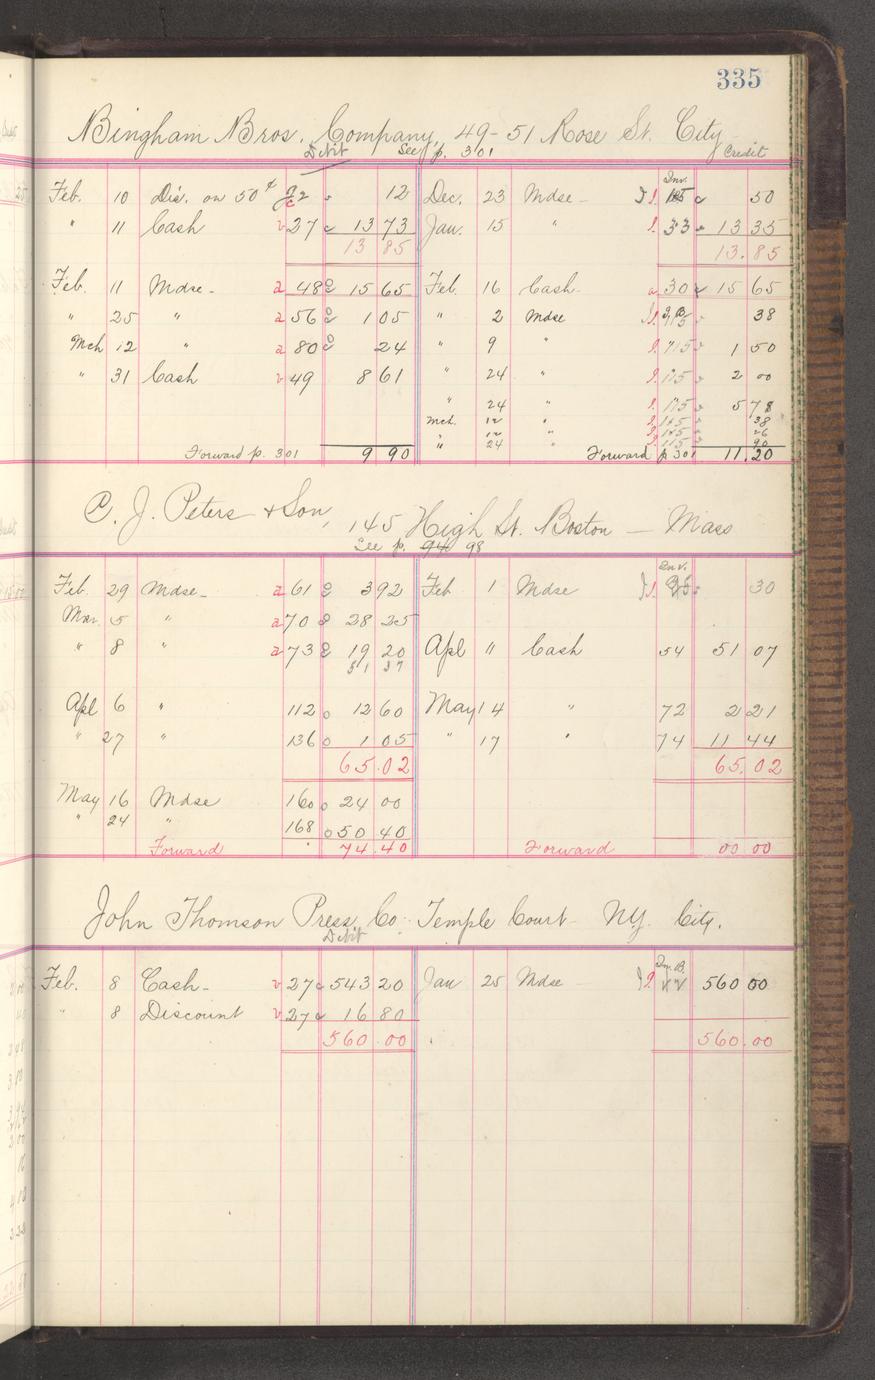 335
Bingham Bros. Company, 49-51 Rose St. City
Debit See p. 301 Credit
Inv.
Feb. 10 Dis. on 50¢ 12 Dec. 23 Mdse 50
" 11 Cash 27 13 73 Jan. 15 " 33 13 35
13 85 13.85
Feb. 11 Mdse 48 15 65 Feb. 16 Cash 30 15 65
" 25 " 56 1 05 " 2 Mdse 38
Mch 12 " 80 24 " 9 " 1 50
" 31 Cash 49 8 61 " 24 " 2 00
" 24 " 5 78
Mch. 12 " 38
" 12 " 26
" 24 " 90
Forward p. 301 9 90 Forward p 301 11.20
C. J. Peters & Son, 145 High St. Boston — Mass
See p. 94 98
Inv.
Feb. 29 Mdse 61 3 92 Feb 1 Mdse 30
Mar. 5 " 70 28 25
" 8 " 73 19 20 Apl 11 Cash 54 51 07
51 37
Apl 6 " 112 12 60 May 14 " 72 2 21
" 27 " 136 1 05 " 17 " 74 11 44
65.02 65.02
May 16 Mdse 160 24 00
" 24 " 168 50 40
Forward 74.40 Forward 00 00
John Thomson Press Co. Temple Court - N.Y. City.
Debit
Inv. B.
Feb. 8 Cash 27 543 20 Jan 25 Mdse 560 00
" 8 Discount 27 16 80
560.00 560.00